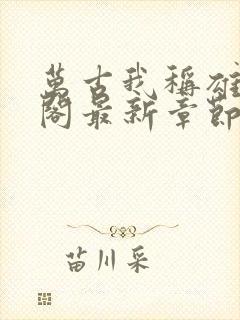 萬古我稱雄
閣最新章節
苗川采